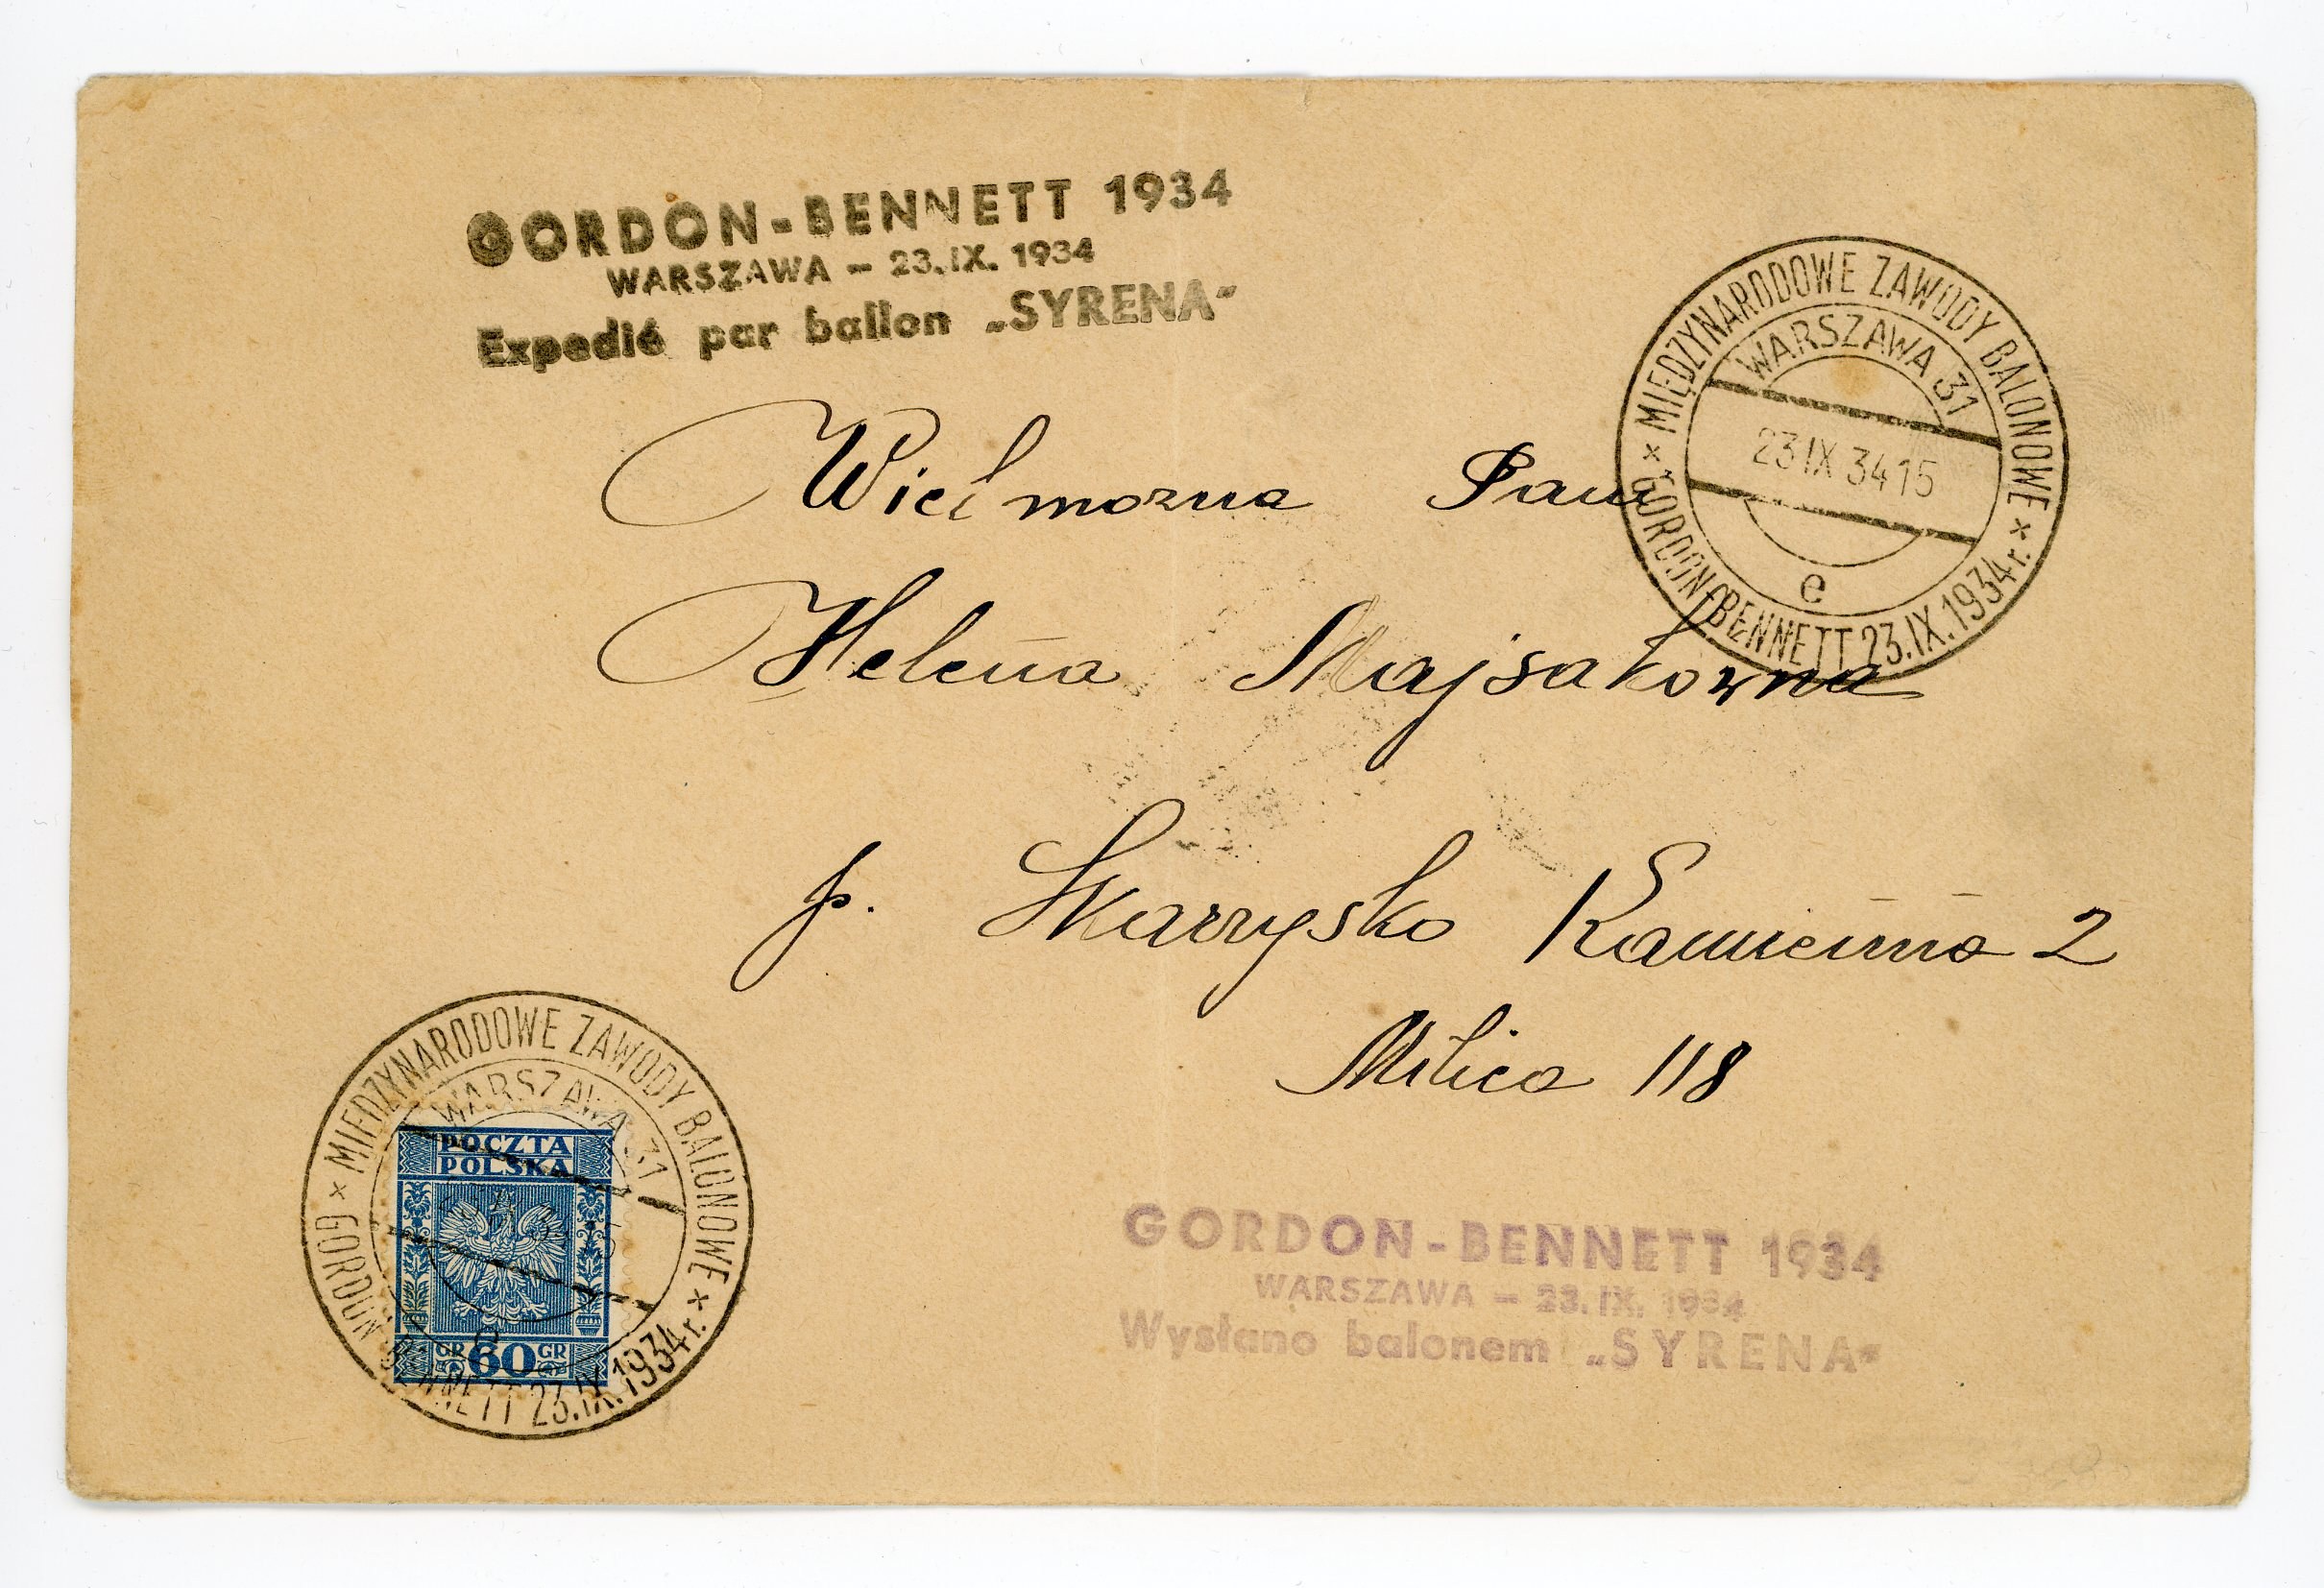 GORDON-BENNETT 1934
WARSZAWA - 23.IX. 1934
Expedié par ballon „SYRENA"
MIĘDZYNARODOWE ZAWODY BALONOWE
WARSZAWA 31
23 IX 34 15
e
GORDON-BENNETT 23.IX.1934 r.
Wielmozna Pani
Helena Majsakowna
p. Skarzysko Kamienna 2
Milica 118
MIĘDZYNARODOWE ZAWODY BALONOWE
WARSZAWA 31
GORDON BENNETT 23.IX.1934 r.
POCZTA
POLSKA
GR 60 GR
GORDON-BENNETT 1934
WARSZAWA - 23.IX. 1934
Wysłano balonem „SYRENA"